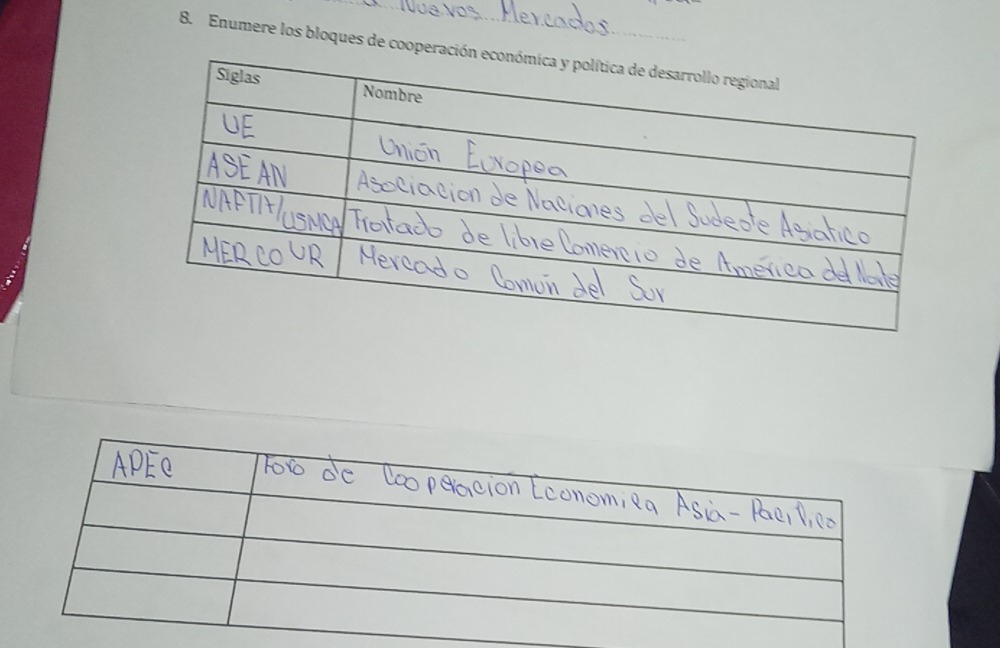 Nuevos Mercados
8. Enumere los bloques de cooperación económica y política de desarrollo regional
Siglas Nombre
UE Unión Europea
ASEAN Asociacion de Naciones del Sudeste Asiatico
NAFTA/USMCA Tratado de libre Comercio de América del Norte
MERCOUR Mercado Común del Sur
APEC Foro de Cooperacion Economica Asia-Pacifico